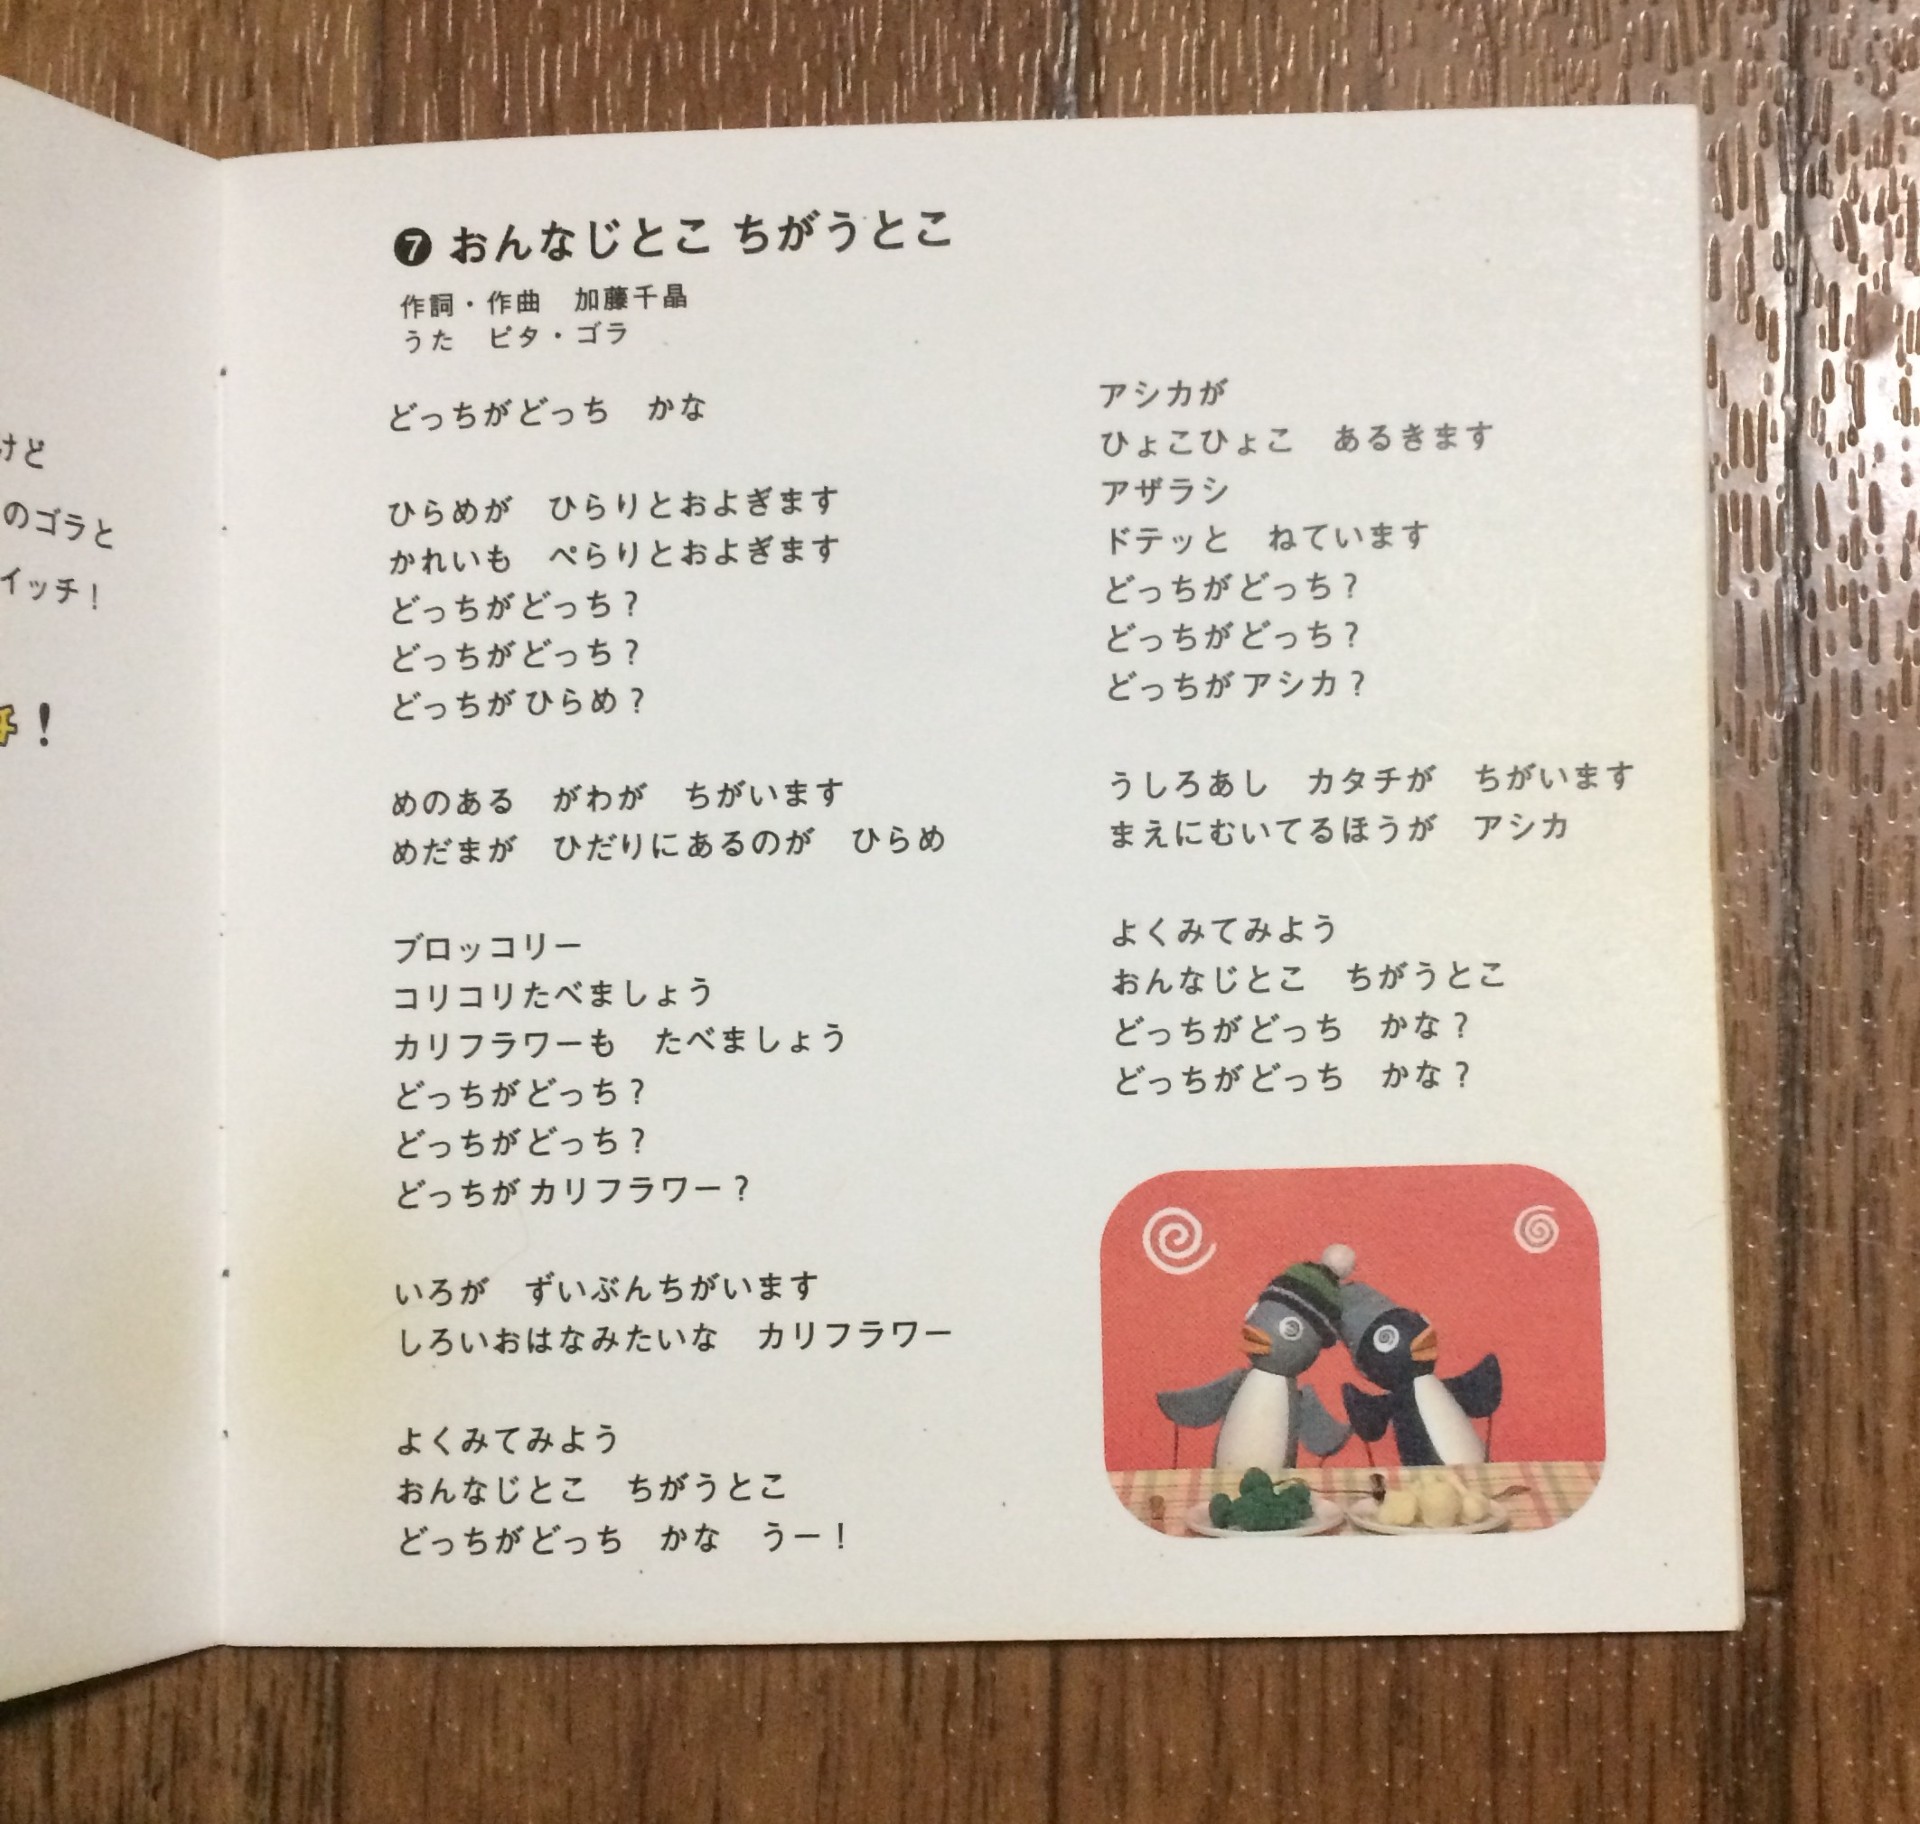 けど
のゴラと
イッチ！
！
❼ おんなじとこ ちがうとこ
作詞・作曲　加藤千晶
うた　ピタ・ゴラ
どっちがどっち　かな
ひらめが　ひらりとおよぎます
かれいも　ぺらりとおよぎます
どっちがどっち？
どっちがどっち？
どっちがひらめ？
めのある　がわが　ちがいます
めだまが　ひだりにあるのが　ひらめ
ブロッコリー
コリコリたべましょう
カリフラワーも　たべましょう
どっちがどっち？
どっちがどっち？
どっちがカリフラワー？
いろが　ずいぶんちがいます
しろいおはなみたいな　カリフラワー
よくみてみよう
おんなじとこ　ちがうとこ
どっちがどっち　かな　うー！
アシカが
ひょこひょこ　あるきます
アザラシ
ドテッと　ねています
どっちがどっち？
どっちがどっち？
どっちがアシカ？
うしろあし　カタチが　ちがいます
まえにむいてるほうが　アシカ
よくみてみよう
おんなじとこ　ちがうとこ
どっちがどっち　かな？
どっちがどっち　かな？